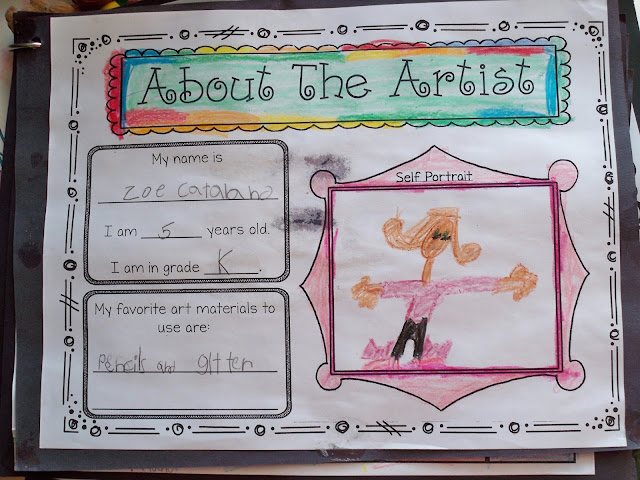 About The Artist
My name is
Zoe
I am 5 years old.
I am in grade K.
My favorite art materials to
use are:
Pencils and glitter
Self Portrait